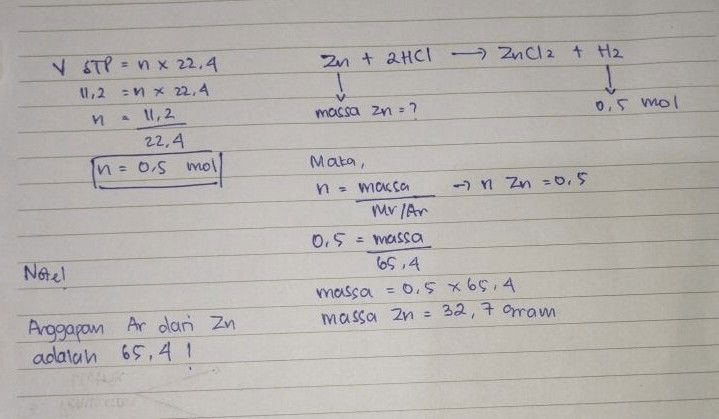 V STP = n x 22,4
11,2 = n x 22,4
n = 11,2
22,4
n = 0,5 mol
Zn + 2HCl → ZnCl2 + H2
massa Zn = ?
0,5 mol
Maka,
n = massa → n Zn = 0,5
Mr/Ar
0,5 = massa
65,4
massa = 0,5 x 65,4
massa Zn = 32,7 gram
Note!
Anggapan Ar dari Zn
adalah 65,4 !